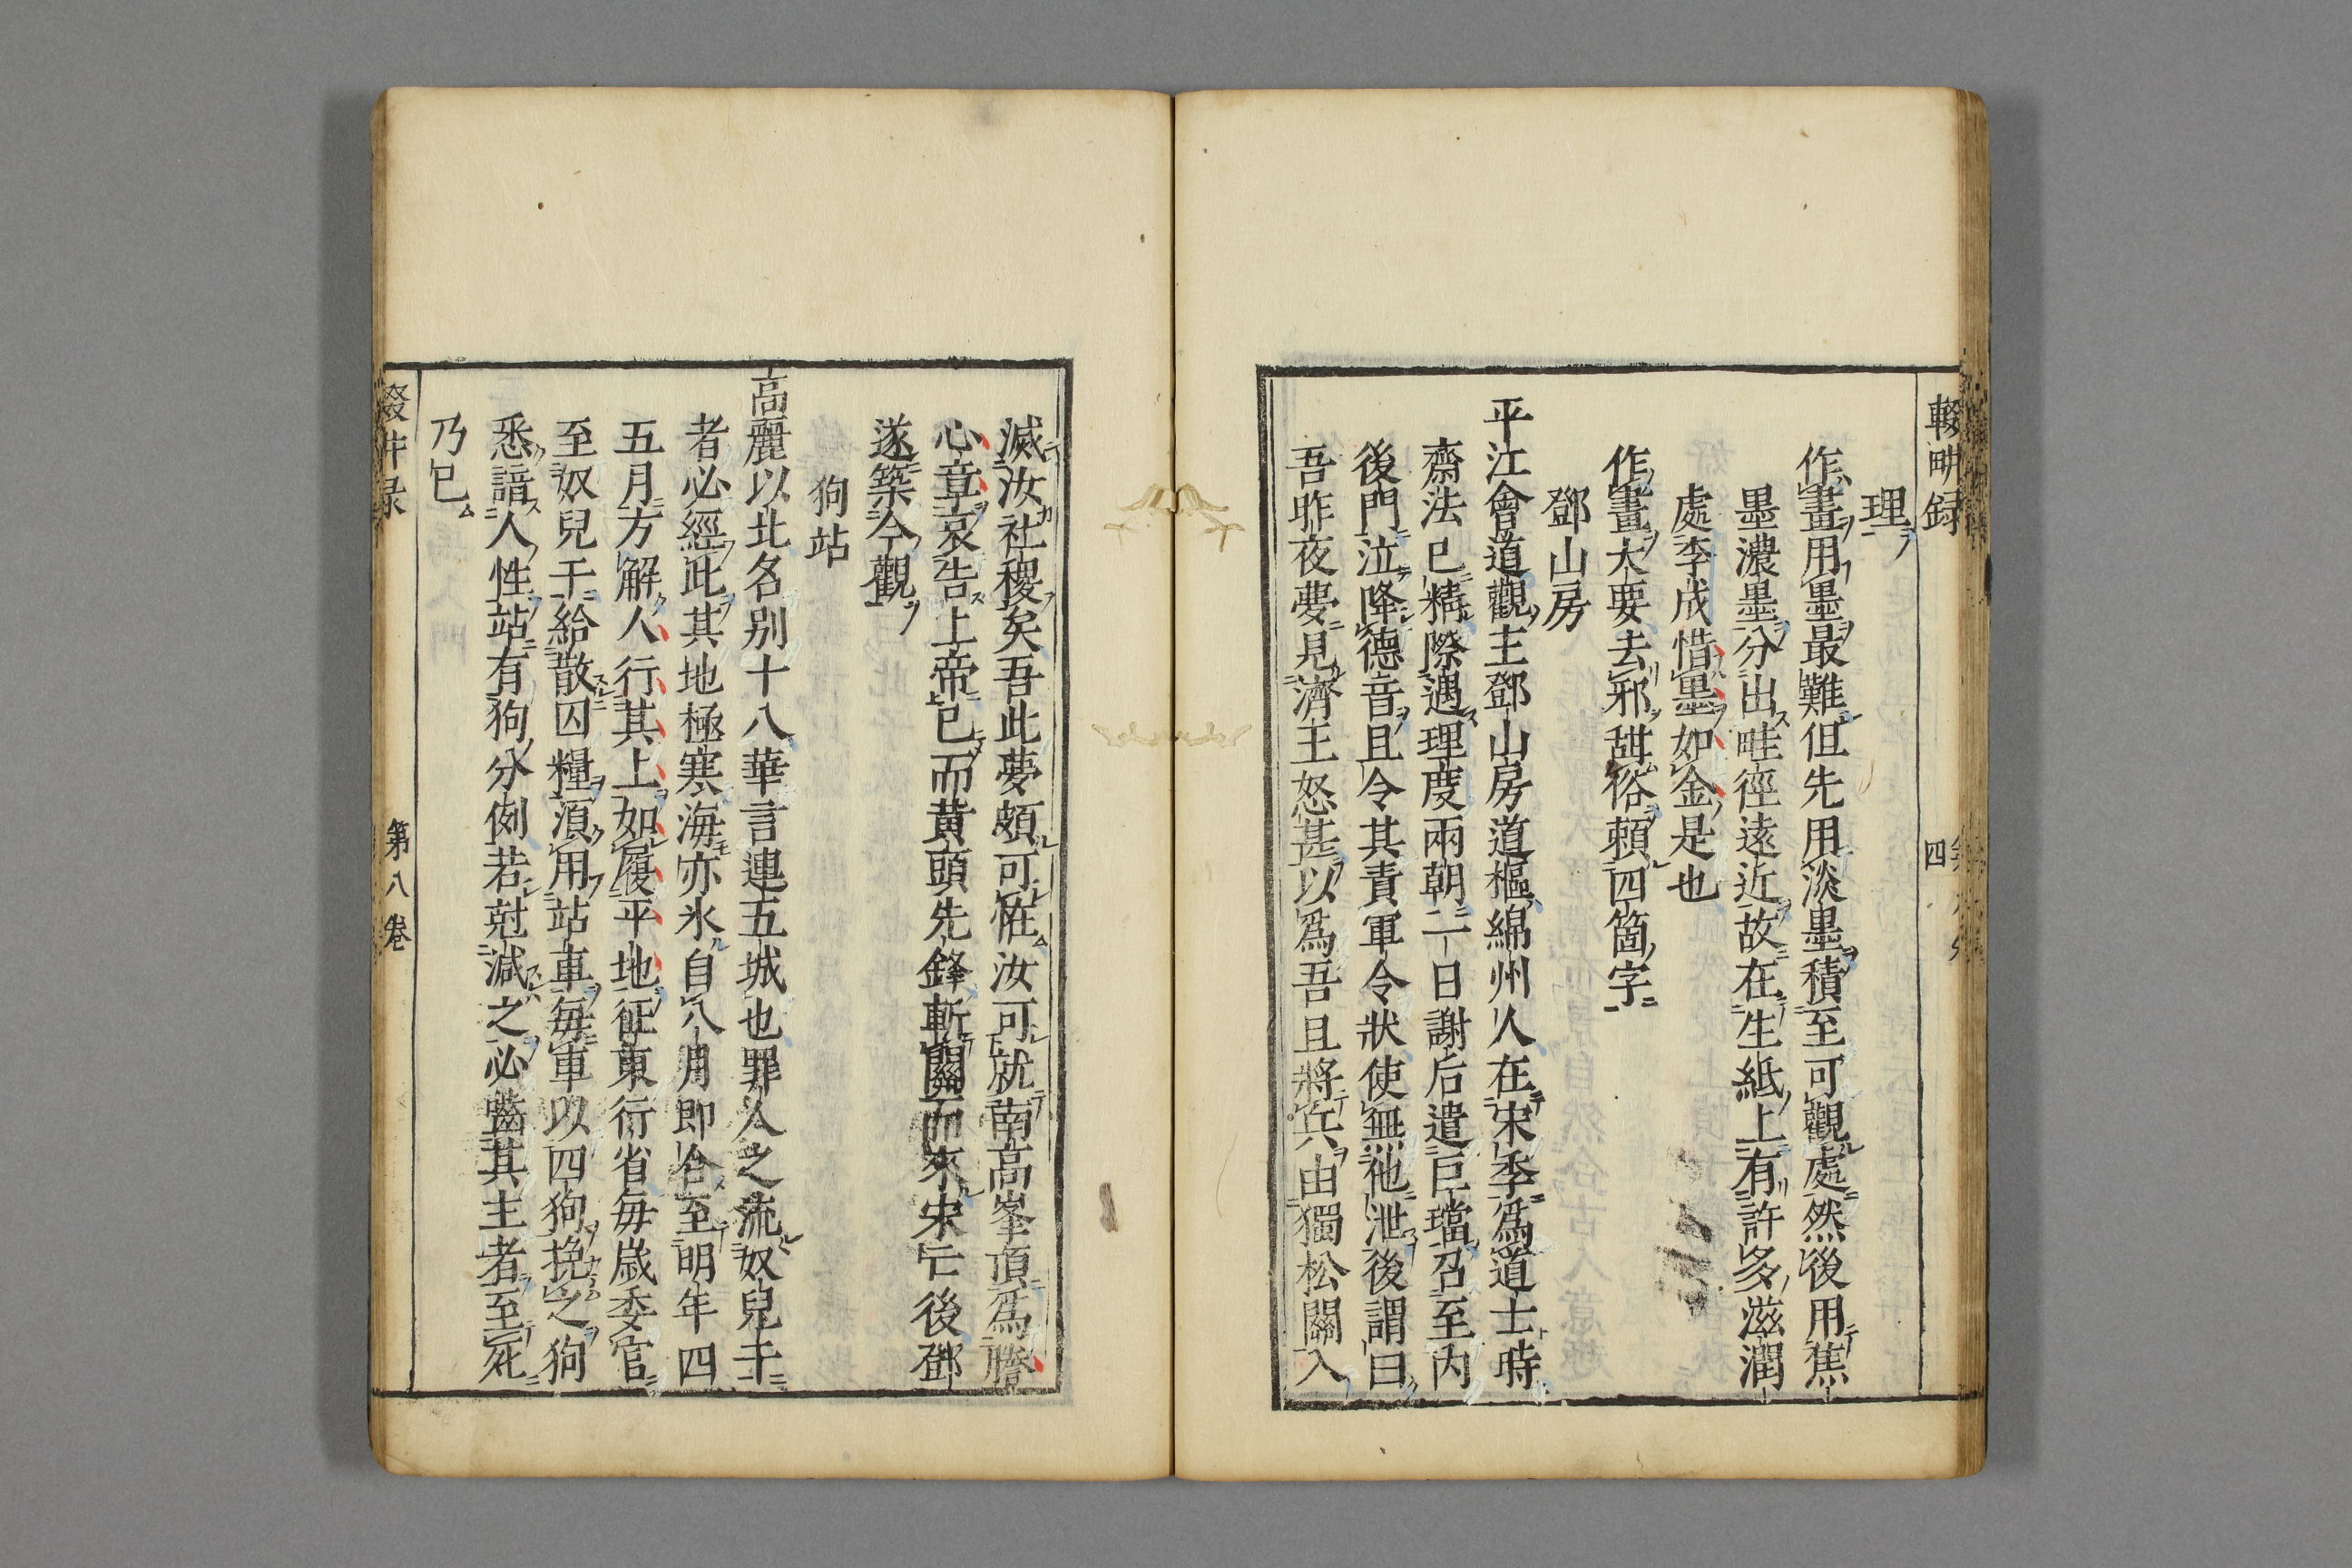 輟畊録
四
理
作畫用墨最難但先用淡墨積至可觀處然後用焦
墨濃墨分出畦徑遠近故在生紙上有許多滋潤
處李成惜墨如金是也
作畫大要去邪甜俗頼四箇字
鄧山房
平江會道觀主鄧山房道樞綿州人在宋季爲道士時
齋法已精際遇理度兩朝二日謝后遣巨璫召至内
後門泣降德音且令其責軍令狀使無他泄後謂曰
吾昨夜夢見濟王怒甚以爲吾且將兵由獨松關入
滅汝社稷矣吾此夢頗可恠汝可就南高峯頂爲謄
心章哀告上帝已而黄頭先鋒斬關而來宋亡後鄧
遂築今觀
狗站
高麗以北名別十八華言連五城也罪人之流奴兒干
者必經此其地極寒海亦氷自八月即合至明年四
五月方解人行其上如履平地征東行省毎歲委官
至奴兒干給散囚糧湏用站車毎車以四狗挽之狗
悉諳人性站有狗分例若尅減之必嚙其主者至死
乃已
第八卷